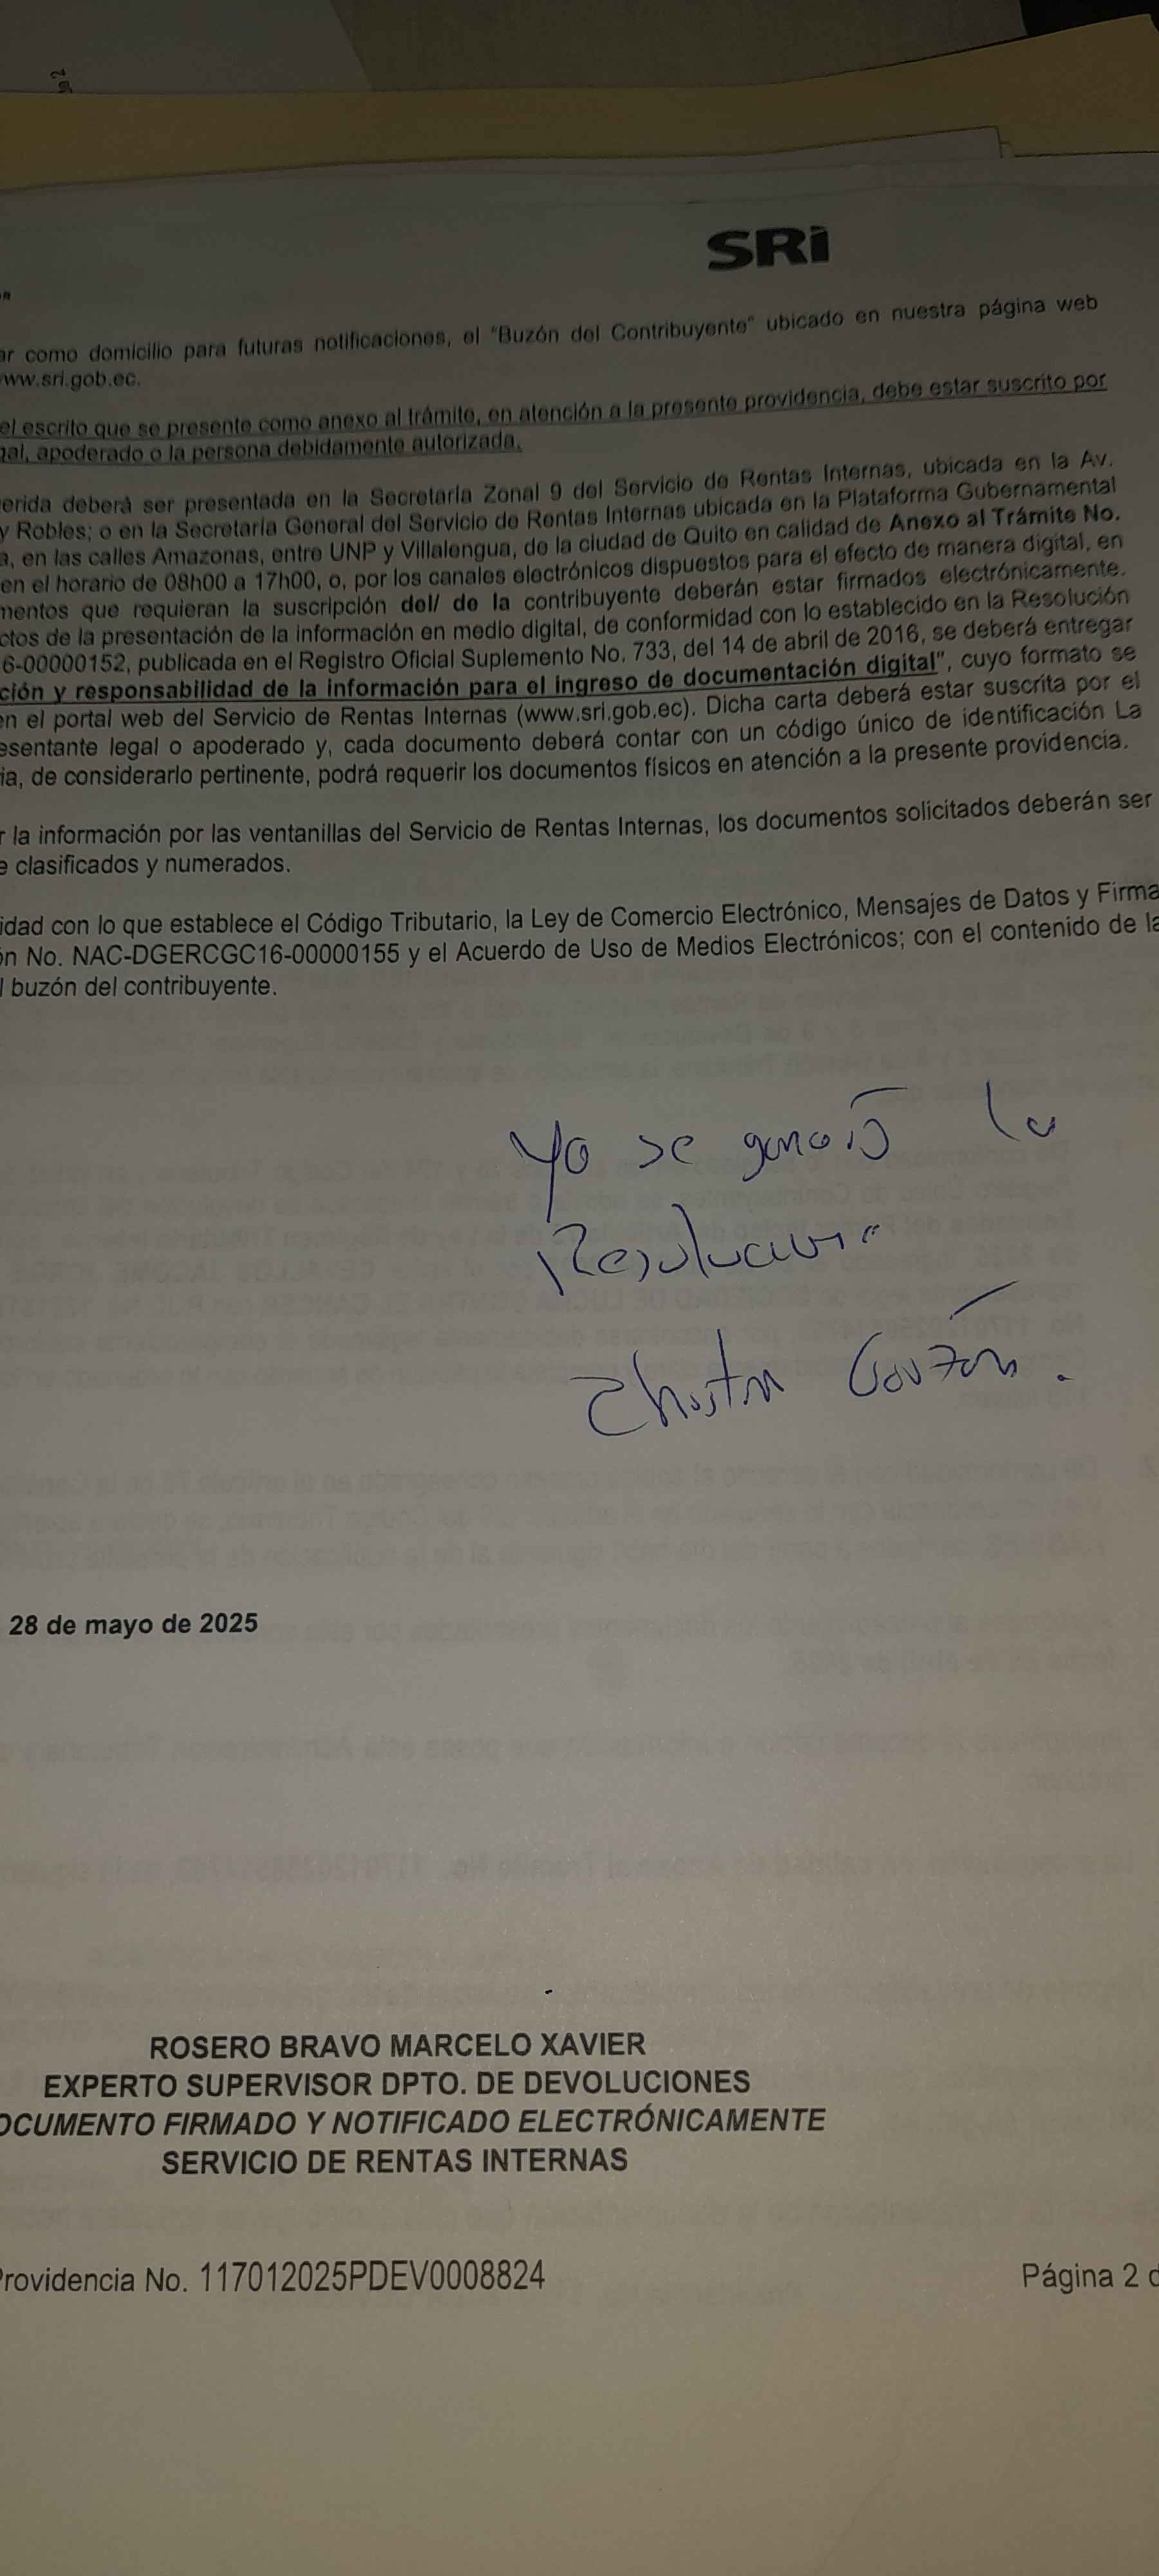 SRi
ar como domicilio para futuras notificaciones, el "Buzón del Contribuyente" ubicado en nuestra página web
www.sri.gob.ec.
el escrito que se presente como anexo al trámite, en atención a la presente providencia, debe estar suscrito por
gal, apoderado o la persona debidamente autorizada.
erida deberá ser presentada en la Secretaría Zonal 9 del Servicio de Rentas Internas, ubicada en la Av.
y Robles; o en la Secretaría General del Servicio de Rentas Internas ubicada en la Plataforma Gubernamental
a, en las calles Amazonas, entre UNP y Villalengua, de la ciudad de Quito en calidad de Anexo al Trámite No.
en el horario de 08h00 a 17h00, o, por los canales electrónicos dispuestos para el efecto de manera digital, en
mentos que requieran la suscripción del/ de la contribuyente deberán estar firmados electrónicamente.
ctos de la presentación de la información en medio digital, de conformidad con lo establecido en la Resolución
6-00000152, publicada en el Registro Oficial Suplemento No. 733, del 14 de abril de 2016, se deberá entregar
ción y responsabilidad de la información para el ingreso de documentación digital", cuyo formato se
en el portal web del Servicio de Rentas Internas (www.sri.gob.ec). Dicha carta deberá estar suscrita por el
esentante legal o apoderado y, cada documento deberá contar con un código único de identificación La
ia, de considerarlo pertinente, podrá requerir los documentos físicos en atención a la presente providencia.
r la información por las ventanillas del Servicio de Rentas Internas, los documentos solicitados deberán ser
e clasificados y numerados.
idad con lo que establece el Código Tributario, la Ley de Comercio Electrónico, Mensajes de Datos y Firma
ón No. NAC-DGERCGC16-00000155 y el Acuerdo de Uso de Medios Electrónicos; con el contenido de la
l buzón del contribuyente.
Ya se generó la
Resolución
28 de mayo de 2025
ROSERO BRAVO MARCELO XAVIER
EXPERTO SUPERVISOR DPTO. DE DEVOLUCIONES
OCUMENTO FIRMADO Y NOTIFICADO ELECTRÓNICAMENTE
SERVICIO DE RENTAS INTERNAS
Providencia No. 117012025PDEV0008824
Página 2 d